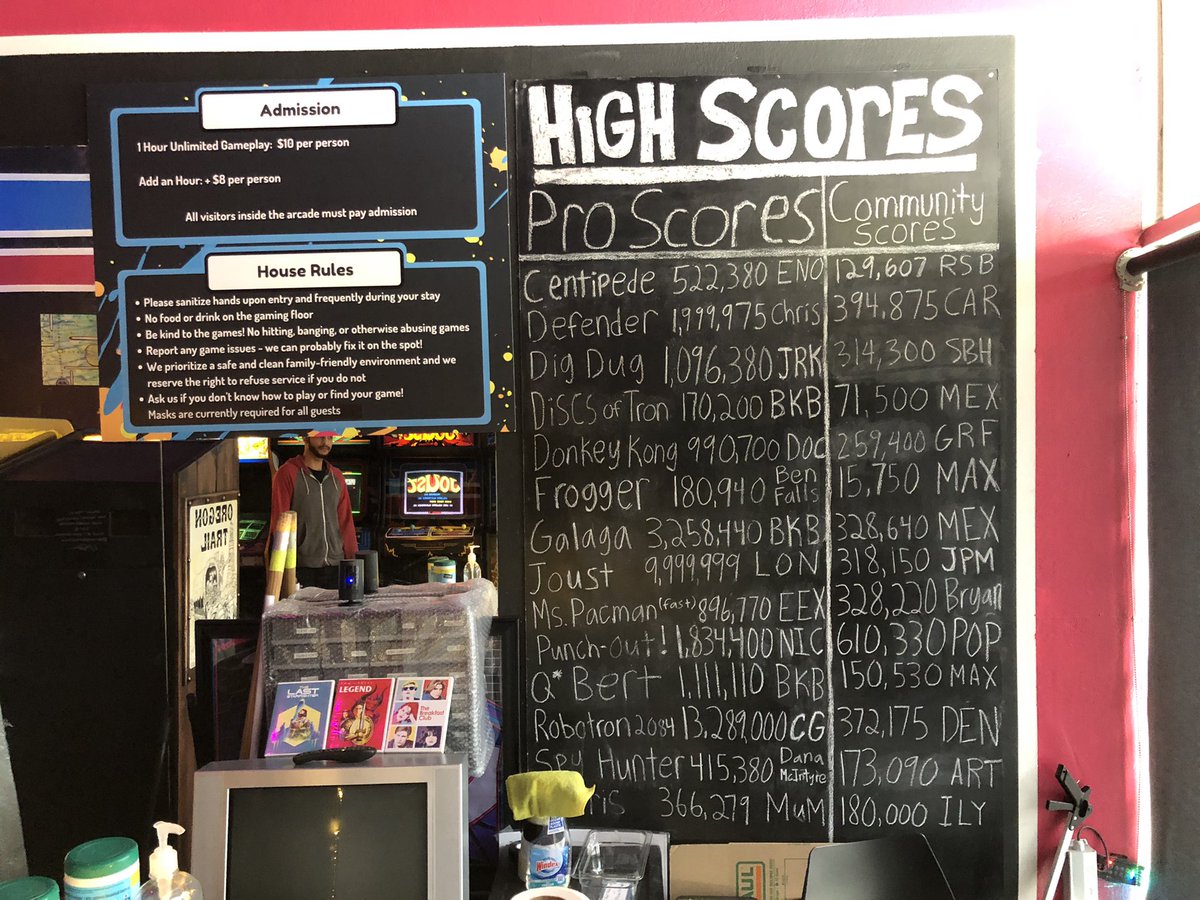 Admission
1 Hour Unlimited Gameplay: $10 per person
Add an Hour: + $8 per person
All visitors inside the arcade must pay admission
House Rules
• Please sanitize hands upon entry and frequently during your stay
• No food or drink on the gaming floor
• Be kind to the games! No hitting, banging, or otherwise abusing games
• Report any game issues - we can probably fix it on the spot!
• We prioritize a safe and clean family-friendly environment and we
reserve the right to refuse service if you do not
• Ask us if you don't know how to play or find your game!
Masks are currently required for all guests
HIGH SCORES
Pro Scores Community
Scores
Centipede 522,380 ENO 129,607 RSB
Defender 1,999,975 Chris 394,875 CAR
Dig Dug 1,096,380 JRK 314,300 SBH
Discs of Tron 170,200 BKB 71,500 MEX
Donkey Kong 990,700 DOC 259,400 GRF
Frogger 180,940 Ben Falls 15,750 MAX
Galaga 3,258,440 BKB 328,640 MEX
Joust 9,999,999 LON 318,150 JPM
Ms. Pacman (fast) 896,770 EEX 328,220 Bryan
Punch-out! 1,834,400 NIC 610,330 POP
Q*Bert 1,111,110 BKB 150,530 MAX
Robotron 2084 13,289,000 CG 372,175 DEN
Spy Hunter 415,380 Dana McIntyre 173,090 ART
366,279 MUM 180,000 ILY
JOUST
OREGON
TRAIL
THE LAST
STARFIGHTER
LEGEND
The
Breakfast
Club
Windex